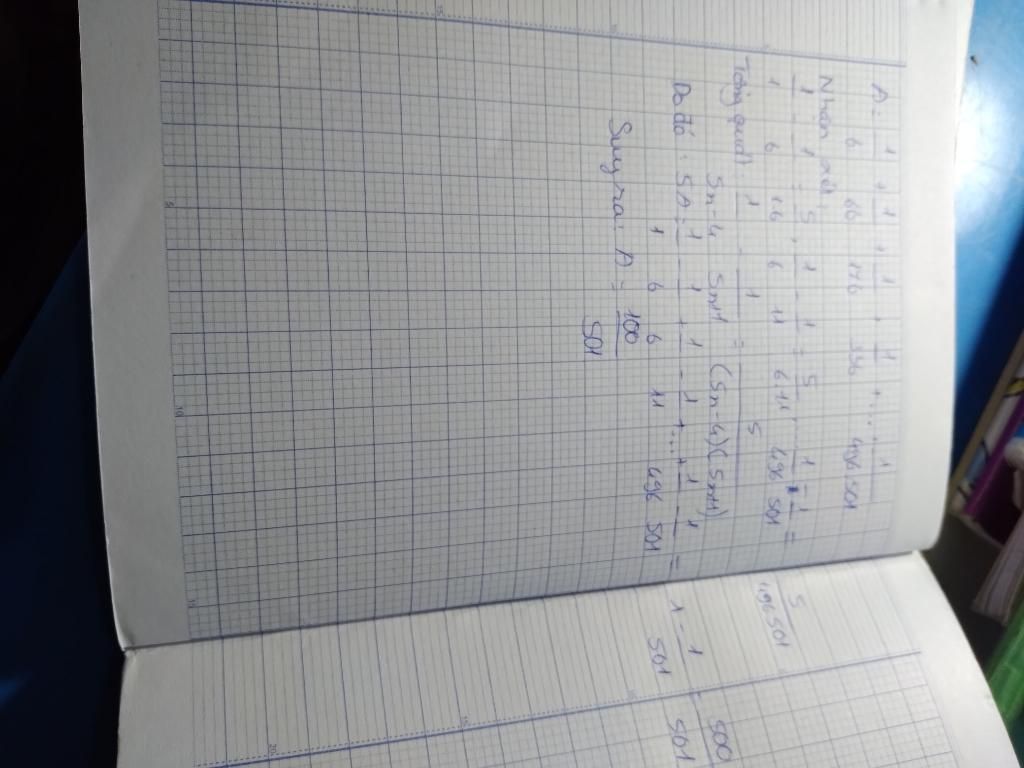 A = 1/6 + 1/66 + 1/176 + 1/336 + ... + 1/496 501
Nhận xét,
1/1 - 1/6 = 5/1.6, 1/6 - 1/11 = 5/6.11, ... 1/496 - 1/501 = 5/496 501
Tổng quát: 1/5n-4 - 1/5n+1 = 5/(5n-4)(5n+1)
Do đó: 5A = 1/1 - 1/6 + 1/6 - 1/11 + ... + 1/496 - 1/501 = 1 - 1/501 = 500/501
Suy ra: A = 100/501